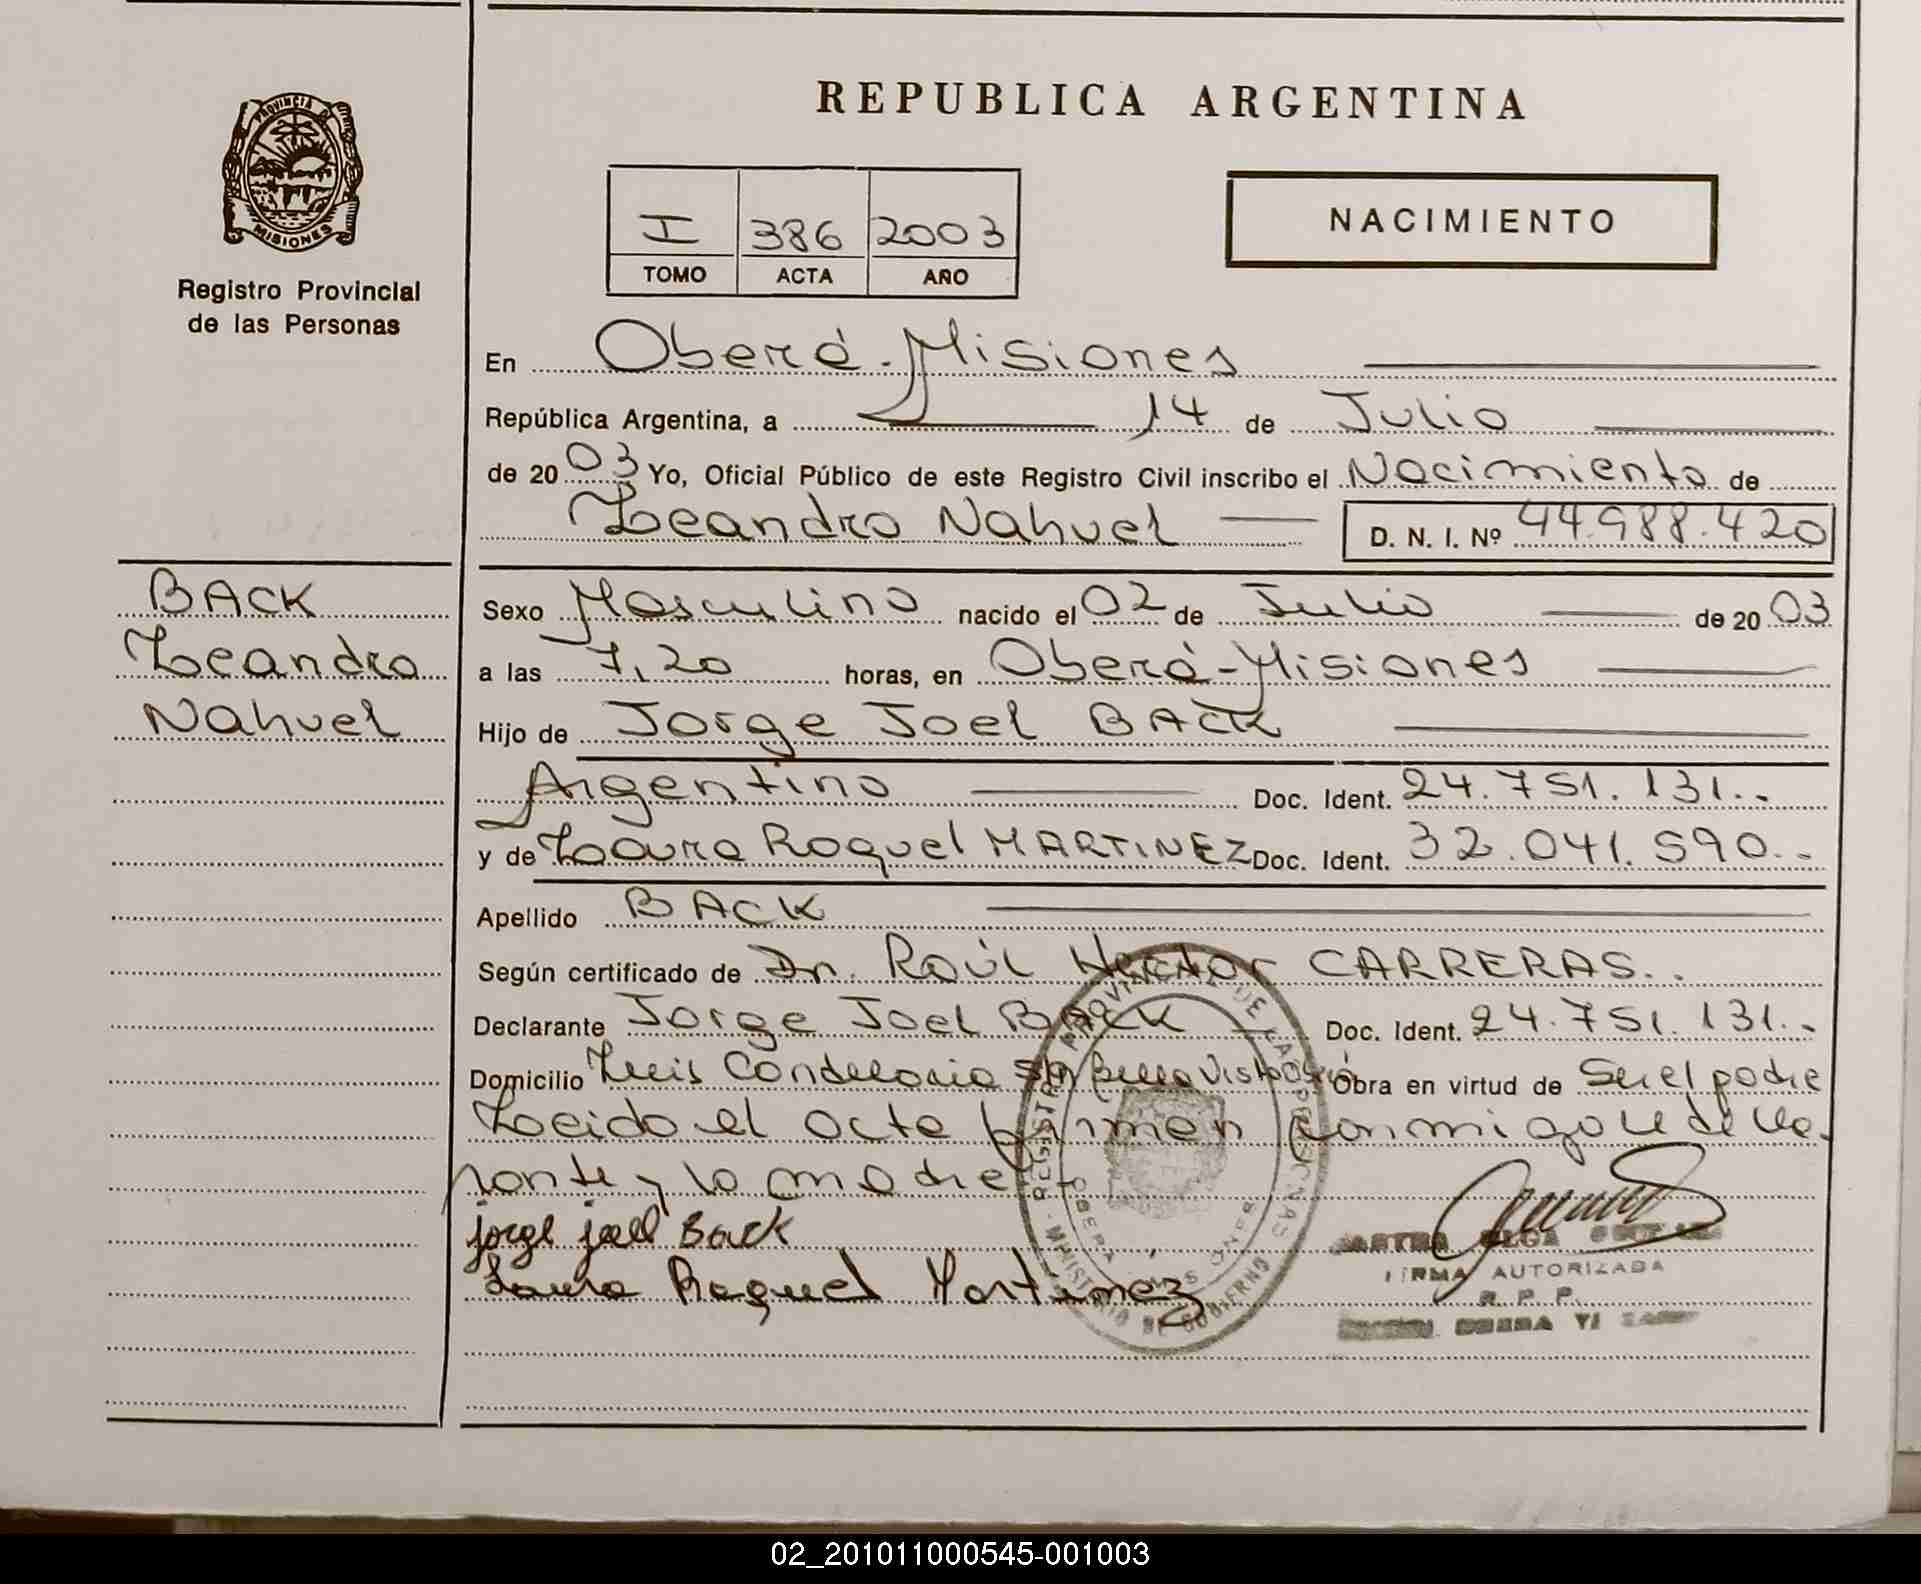 REPUBLICA ARGENTINA
PROVINCIA DE
MISIONES
Registro Provincial
de las Personas
I 386 2003
TOMO ACTA AÑO
NACIMIENTO
En Oberá-Misiones
República Argentina, a 14 de Julio
de 2003 Yo, Oficial Público de este Registro Civil inscribo el Nacimiento de
Leandro Nahuel D. N. I. Nº 44.988.420
BACK
Leandro
Nahuel
Sexo Masculino nacido el 02 de Julio de 2003
a las 7,20 horas, en Oberá-Misiones
Hijo de Jorge Joel BACK
Argentino Doc. Ident. 24.751.131..
y de Laura Raquel MARTINEZ Doc. Ident. 32.041.590..
Apellido BACK
Según certificado de Dr. Raúl Hector CARRERAS..
Declarante Jorge Joel BACK Doc. Ident. 24.751.131..
Domicilio Luis Candelaria S/N Bella Vista Obra en virtud de Ser el padre
Leida el acta firman conmigo el decla-
rante y la madre
jorge joel Back
Laura Raquel Martinez
REGISTRO PROVINCIAL DE LAS PERSONAS
MINISTERIO DE GOBIERNO
OBERA
MISIONES
OLGA
FIRMA AUTORIZADA
R. P. P.
02_201011000545-001003